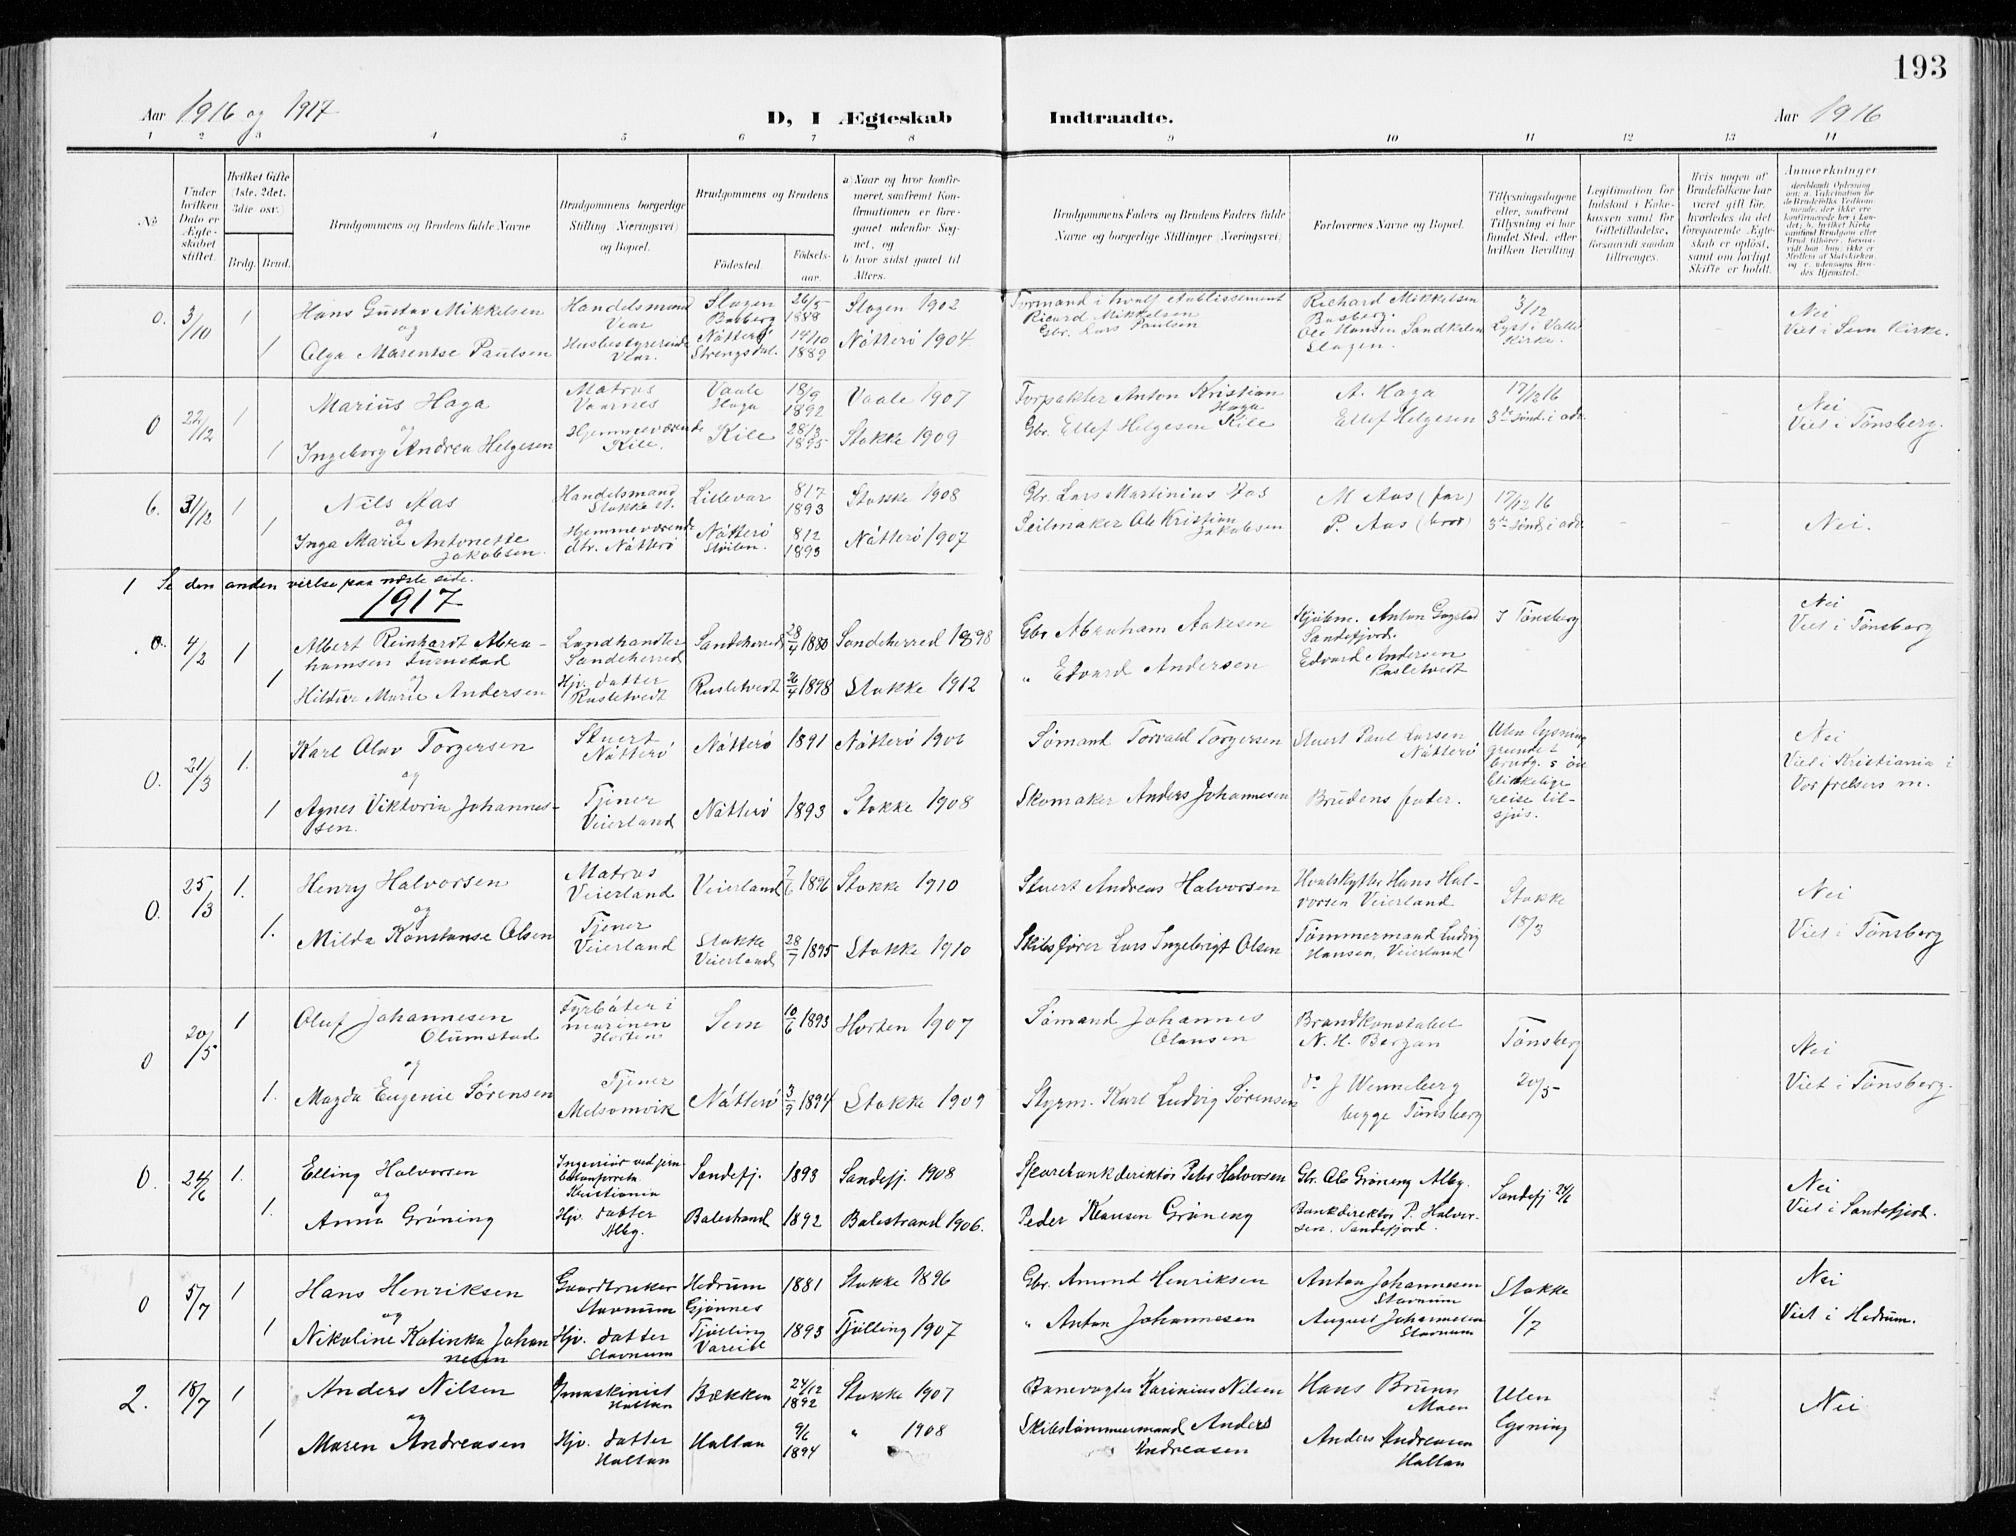 193
Aar 1916 og 1917
D, I Ægteskab
Indtraadte.
Aar 1916
1 2 3 4 5 6 7 8 9 10 11 12 13 14
No
Under hvilken Dato er Ægteskabet stiftet.
Hvilket Gifte (1ste, 2det, 3die osv.)
Brdg. Brud.
Brudgommens og Brudens fulde Navne
Brudgommens borgerlige Stilling (Næringsvei) og Bopæl.
Brudgommens og Brudens
Fødested. Fødselsaar.
a) Naar og hvor konfirmeret, saafremt Konfirmationen er foregaaet udenfor Sognet, og
b) hvor sidst gaaet til Alters.
Brudgommens Faders og Brudens Faders fulde Navne og borgerlige Stillinger (Næringsvei)
Forlovernes Navne og Bopæl.
Tillysningsdagene eller, saafremt Tillysning ei har fundet Sted, efter hvilken Bevilling
Legitimation for Indskud i Enkekassen samt for Giftetilladelse, forsaavidt saadan tiltrænges.
Hvis nogen af Brudefolkene har været gift før, hvorledes da det foregaaende Ægteskab er opløst, samt om lovligt Skifte er holdt.
Anmerkninger
0. 3/10 1 Hans Gustav Mikkelsen Handelsmand Vear Slagen Basberg 26/5 1888 Slagen 1902 Formand i hvalf etablissement Ricard Mikkelsen Richard Mikkelsen Basberg. 3/12 Nei
og
1 Olga Marentse Paulsen Husbestyrerinde Vear. Nøtterø Strengsdal. 14/10 1889 Nøtterø 1904. Gbr. Lars Paulsen Ole Hansen Sandkilen Slagen. Lyst i Valle Kirke. Viet i Sem Kirke.
0 22/12 1 Marius Haga Matros Vaarnes Vaale Haga 18/9 1892 Vaale 1907 Forpakter Anton Kristian Haga A. Haga 17/12 16 Nei
og
1 Ingeborg Andrea Helgesen Hjemmeværende Kile. Kile 28/3 1895 Stokke 1909 Gbr. Ellef Helgesen Kile Ellef Helgesen 3de sønd. i adv. Viet i Tønsberg.
6. 31/12 1 Nils Aas Handelsmand Stokke st. Lillevar 8/7 1893 Stokke 1908 Gbr. Lars Martinius Aas M Aas (far) 17/12 16
og
1 Inga Marie Antonette Jakobsen. Hjemmeværende dtr. Nøtterø Nøtterø 8/2 1893 Nøtterø 1907 Seilmaker Ole Kristian Jakobsen P. Aas (bror) 3de sønd. i adv. Nei.
1 Se den anden vielse paa næste side.
1917
0. 4/2 1 Albert Reinhardt Abrahamsen Furustad Landhandler Sandeherred Sandeherred 28/4 1880 Sandeherred 1898 Gbr Abraham Aakesen Kjøbm. Anton Gogstad Sandefjord. I Tønsberg Nei
og
1 Hildur Marie Andersen Hjv. datter Rasletvedt Rasletvedt 26/4 1898 Stokke 1912 " Edvard Andersen Edvard Andersen Rasletvedt Viet i Tønsberg
0. 21/3 1. Karl Olav Torgersen Stuert Nøtterø Nøtterø 1891 Nøtterø 1906 Sømand Torvald Torgersen Stuert Paul Larsen Nøtterø Uten lysning grundet brudg.s øieblikkelige reise tilsjøs. Nei
og
1 Agnes Viktoria Johannessen. Tjener Veierland Nøtterø 1893 Stokke 1908 Skomaker Anders Johannesen Brudens fader. Viet i Kristiania i Vorfrelsers m.
0. 25/3 1. Henry Halvorsen Matros Veierland Veierland 7/6 1896 Stokke 1910 Stuert Andreas Halvorsen Hvalskytter Hans Halvorsen Veierland Stokke Nei
og
1. Milda Konstanse Olsen Tjener Veierland Stokke Veierland 28/7 1895 Stokke 1910 Skibsfører Lars Ingebrigt Olsen Tømmermand Ludvig Hansen, Veierland 18/3 Viet i Tønsberg
0 20/5 1 Oluf Johannesen Olumstad Fyrbøter i marinen Horten Sem 10/6 1893 Horten 1907 Sømand Johannes Olausen Brandkonstabel N. H. Bergan Tønsberg Nei
og
1. Magda Eugenie Sørensen Tjener Melsomvik Nøtterø 3/9 1894 Stokke 1909 Styrm. Karl Ludvig Sørensen do J Wenneberg begge Tønsberg 20/5- Viet i Tønsberg.
0. 24/6 1. Elling Halvorsen Ingeniør ved Kristiania Sandefj. 1893 Sandefj. 1908 Sparebankdirektør Peter Halvorsen Gbr. Ole Grøning Alby. Sandefj 24/6 Nei
og
1. Anna Grøning Hjv. datter Alby. Balestrand 1892 Balestrand 1906. Peder Klausen Grøning Bankdirektør P. Halvorsen. Sandefjord. Viet i Sandefjord.
0 5/7 1 Hans Henriksen Gaardbruker Stavnum Hedrum Gjønnes 1881 Stokke 1896 Gbr. Amund Henriksen Anton Johannesen Stavnum Stokke Nei
og
1 Nikoline Katinka Johannesen Hjv. datter Stavnum Tjølling 1893 Tjølling 1907 " Anton Johannesen August Johannesen Stavnum 1/7 Viet i Hedrum.
2. 18/7 1 Anders Nilsen maskinist Haltan Bækken 24/12 1892 Stokke 1907 Banevogter Karinius Nilsen Hans Bruun Moen Uten lysning Nei
og
1 Maren Andreasen Hjv. datter Haltan Haltan 9/6 1894 " 1908 Skibstømmermand Anders Andreasen Anders Andreasen Haltan